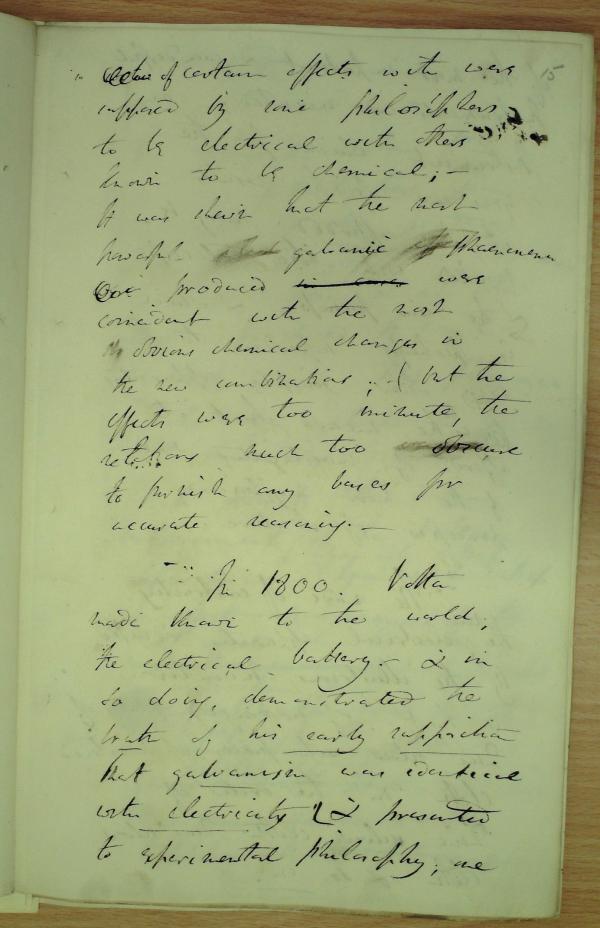 15
of certain effects wich were
supposed by some philosophers
to be electrical with others
known to be chemical; –
It was shewn that the most
powerful galvanic phaenomena
produced in cases were
coincident with the most
obvious chemical changes in
the new combinations ; ( but the
effects were too minute, the
relations much too obscure
to furnish any bases for
accurate reasoning. –
In 1800. Volta
made known to the world,
the electrical battery. & in
so doing, demonstrated the
truth of his early supposition
that galvanism was identical
with electricity & presented
to experimental philosophy, one